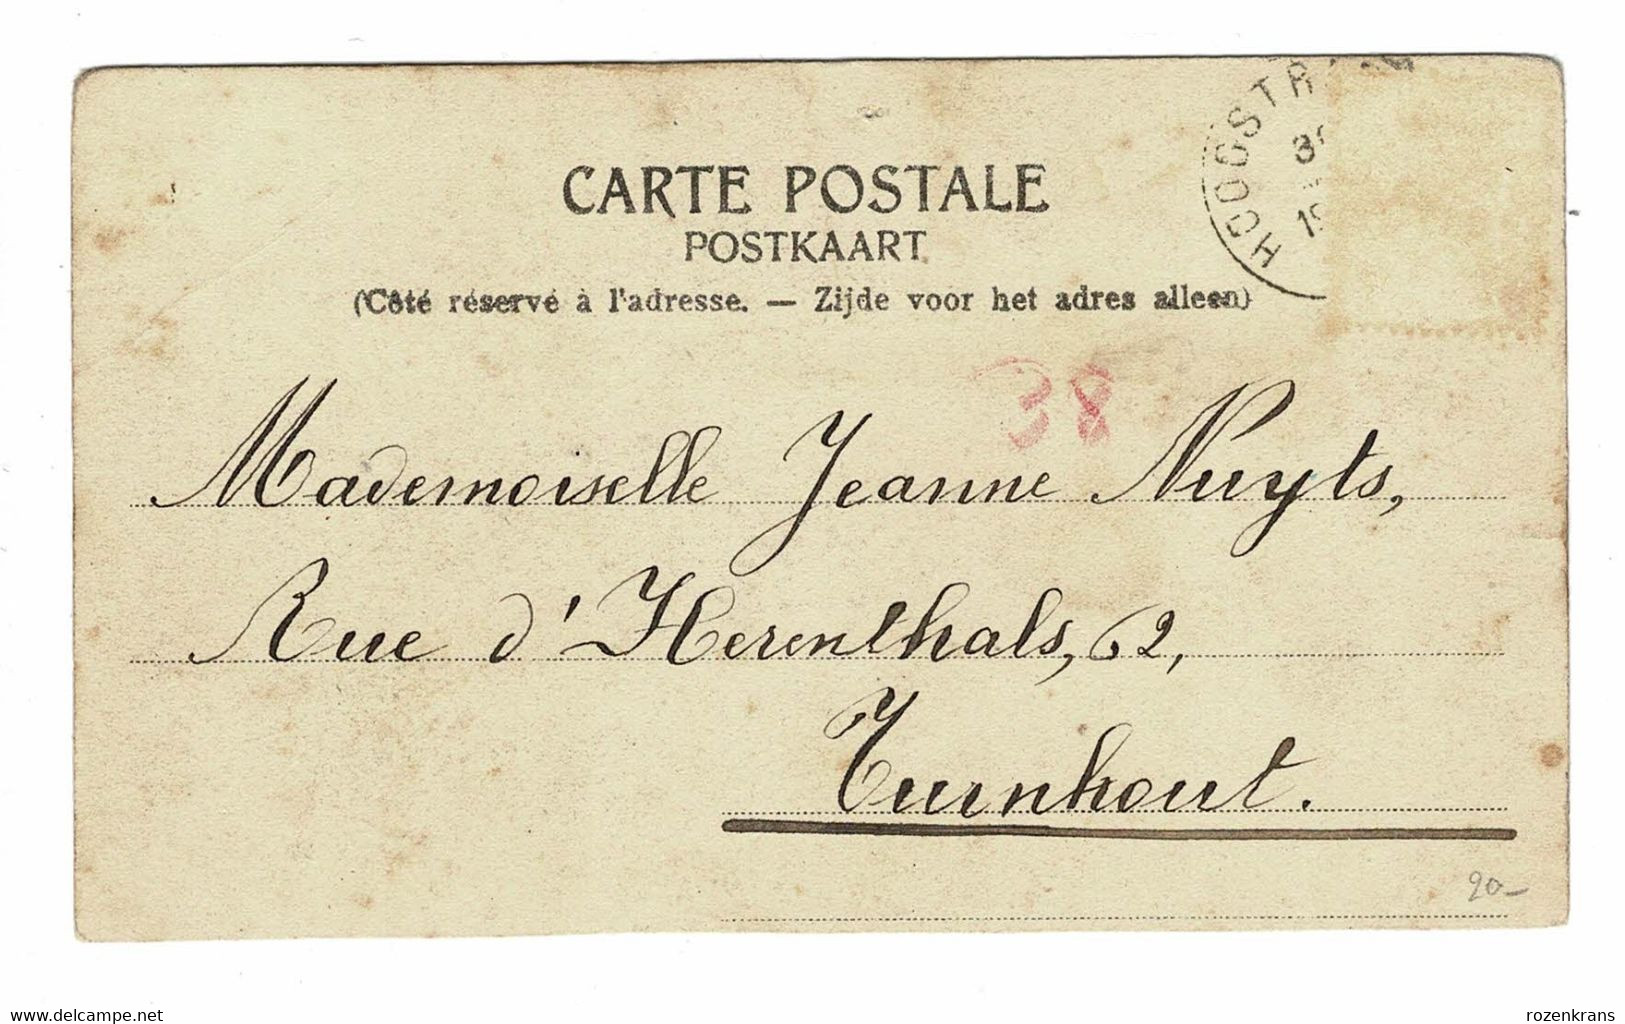 CARTE POSTALE
POSTKAART
(Côté réservé à l'adresse. — Zijde voor het adres alleen)
HOOGSTR
38
Mademoiselle Jeanne Nuyts,
Rue d'Herenthals, 62,
Turnhout.
20-
www.delcampe.net
rozenkrans